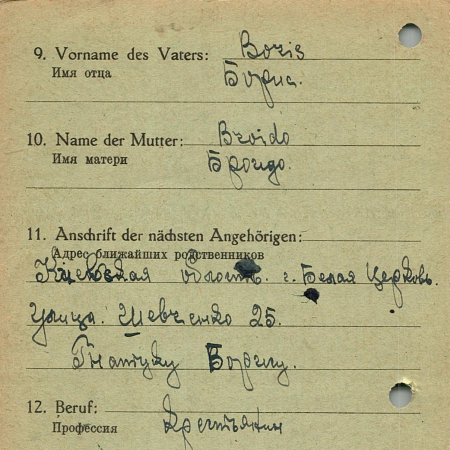 9. Vorname des Vaters: Boris
Имя отца Борис.
10. Name der Mutter: Broido
Имя матери Бройдо.
11. Anschrift der nächsten Angehörigen:
Адрес ближайших родственников
Киевская область. г. Белая Церковь.
Улица. Шевченко 25.
Гнатуку Борису.
12. Beruf:
Профессия Крестьянин